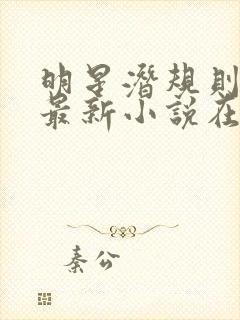 明星潛規則
最新小說在
秦公